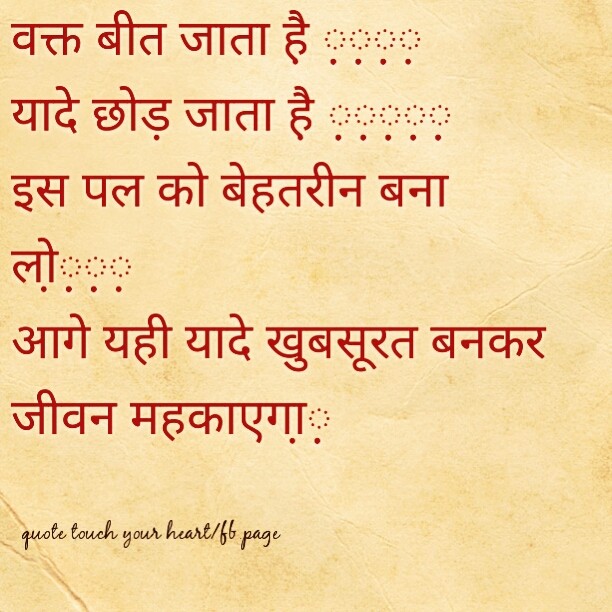 वक्त बीत जाता है ़़़़
यादे छोड़ जाता है ़़़़़
इस पल को बेहतरीन बना
लो़़़़
आगे यही यादे खुबसूरत बनकर
जीवन महकाएगा़़
quote touch your heart/fb page